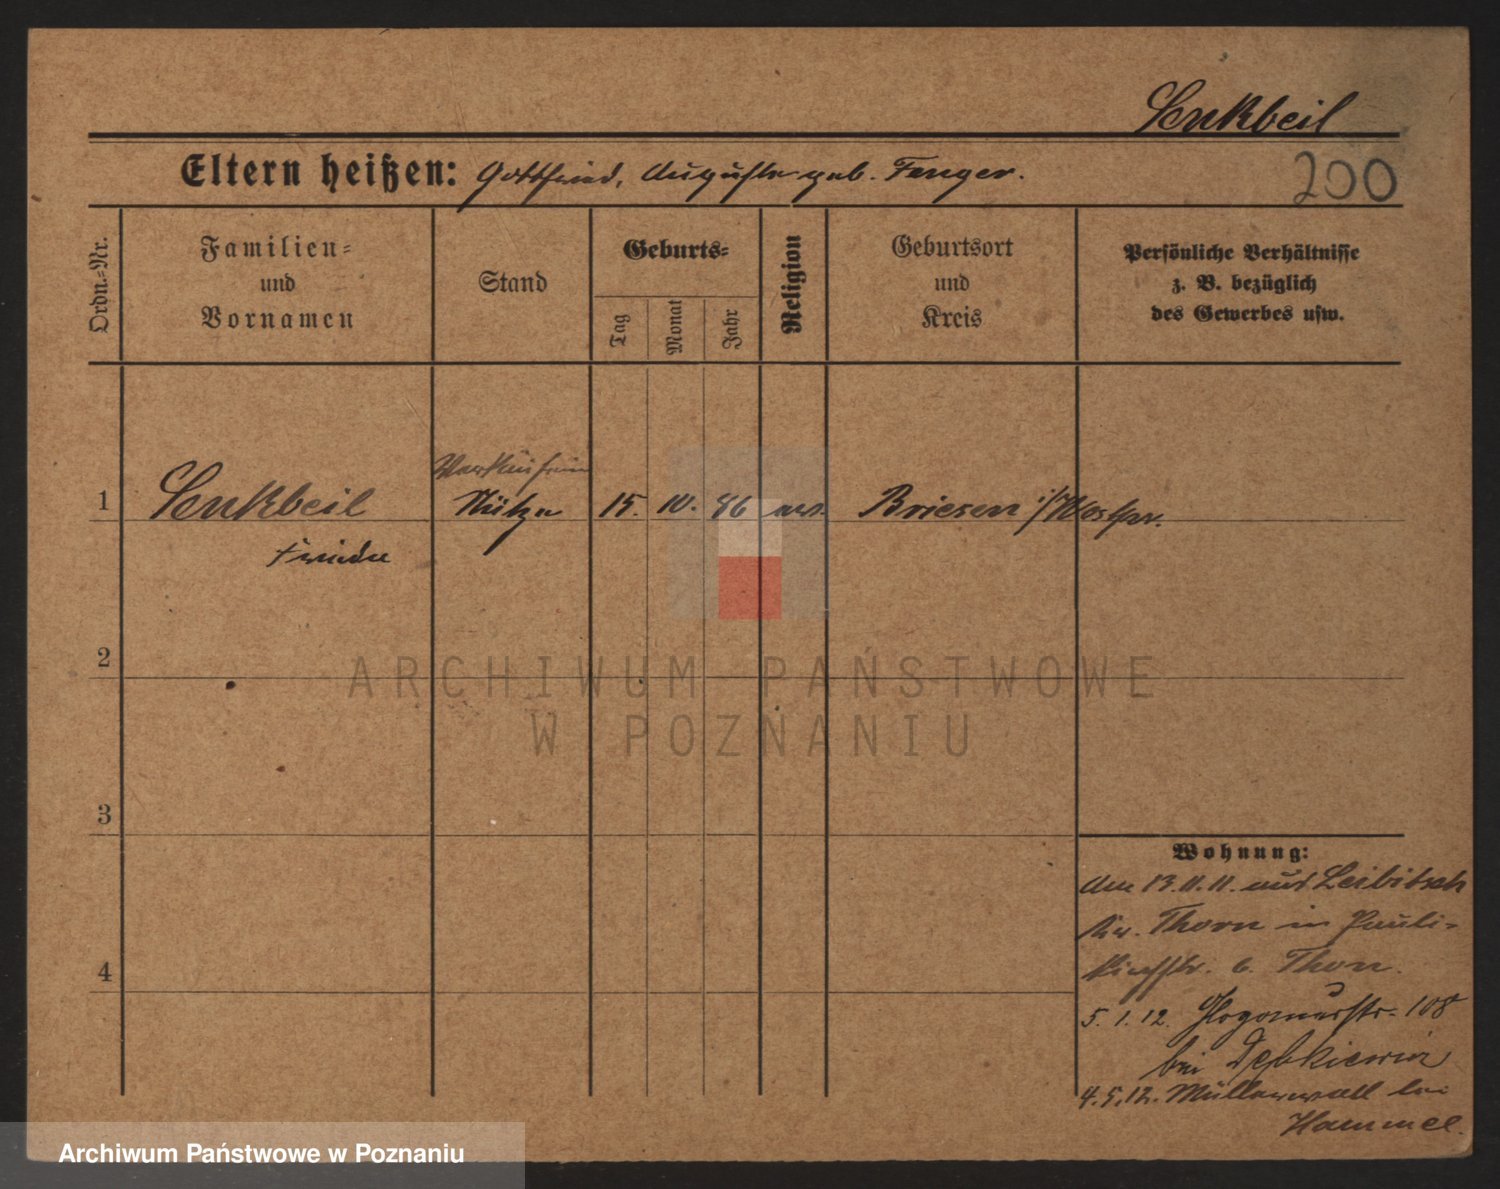 Senkbeil
Eltern heißen: Gottfried, Auguste geb. Fenger.
200
Ordn.=Nr.
Familien=
und
Vornamen
Stand
Geburts=
Tag
Monat
Jahr
Religion
Geburtsort
und
Kreis
Persönliche Verhältnisse
z. B. bezüglich
des Gewerbes usw.
Verkäuferin
1 Senkbeil Stütze 15. 10. 86 ev. Briesen i/Westpr.
Frieda
ARCHIWUM PAŃSTWOWE
W POZNANIU
2
3
4
Wohnung:
Am 13.11.11. aus Leibitsch
Kr. Thorn in Pauli=
kirchstr. b. Thon.
5.1.12. Glogauerstr. 108
bei
4.5.12. Müllerwall bei
Hammel.
Archiwum Państwowe w Poznaniu